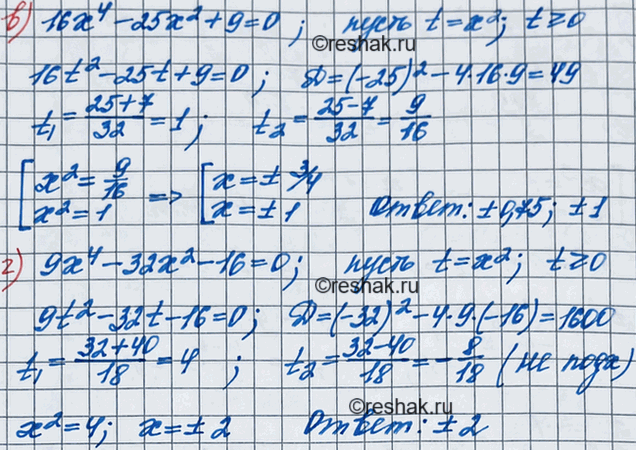 в) 16x⁴ − 25x² + 9 = 0 ; пусть t = x² ; t ≥ 0
©reshak.ru
16t² − 25t + 9 = 0 ; D = (−25)² − 4·16·9 = 49
t₁ = (25+7)/32 = 1 ; t₂ = (25−7)/32 = 9/16
[ x² = 9/16 => [ x = ± 3/4
x² = 1 x = ± 1 Ответ: ± 0,75 ; ± 1
г) 9x⁴ − 32x² − 16 = 0 ; пусть t = x² ; t ≥ 0
©reshak.ru
9t² − 32t − 16 = 0 ; D = (−32)² − 4·9·(−16) = 1600
t₁ = (32+40)/18 = 4 ; t₂ = (32−40)/18 = − 8/18 (не подх)
©reshak.ru
x² = 4 ; x = ± 2 Ответ: ± 2